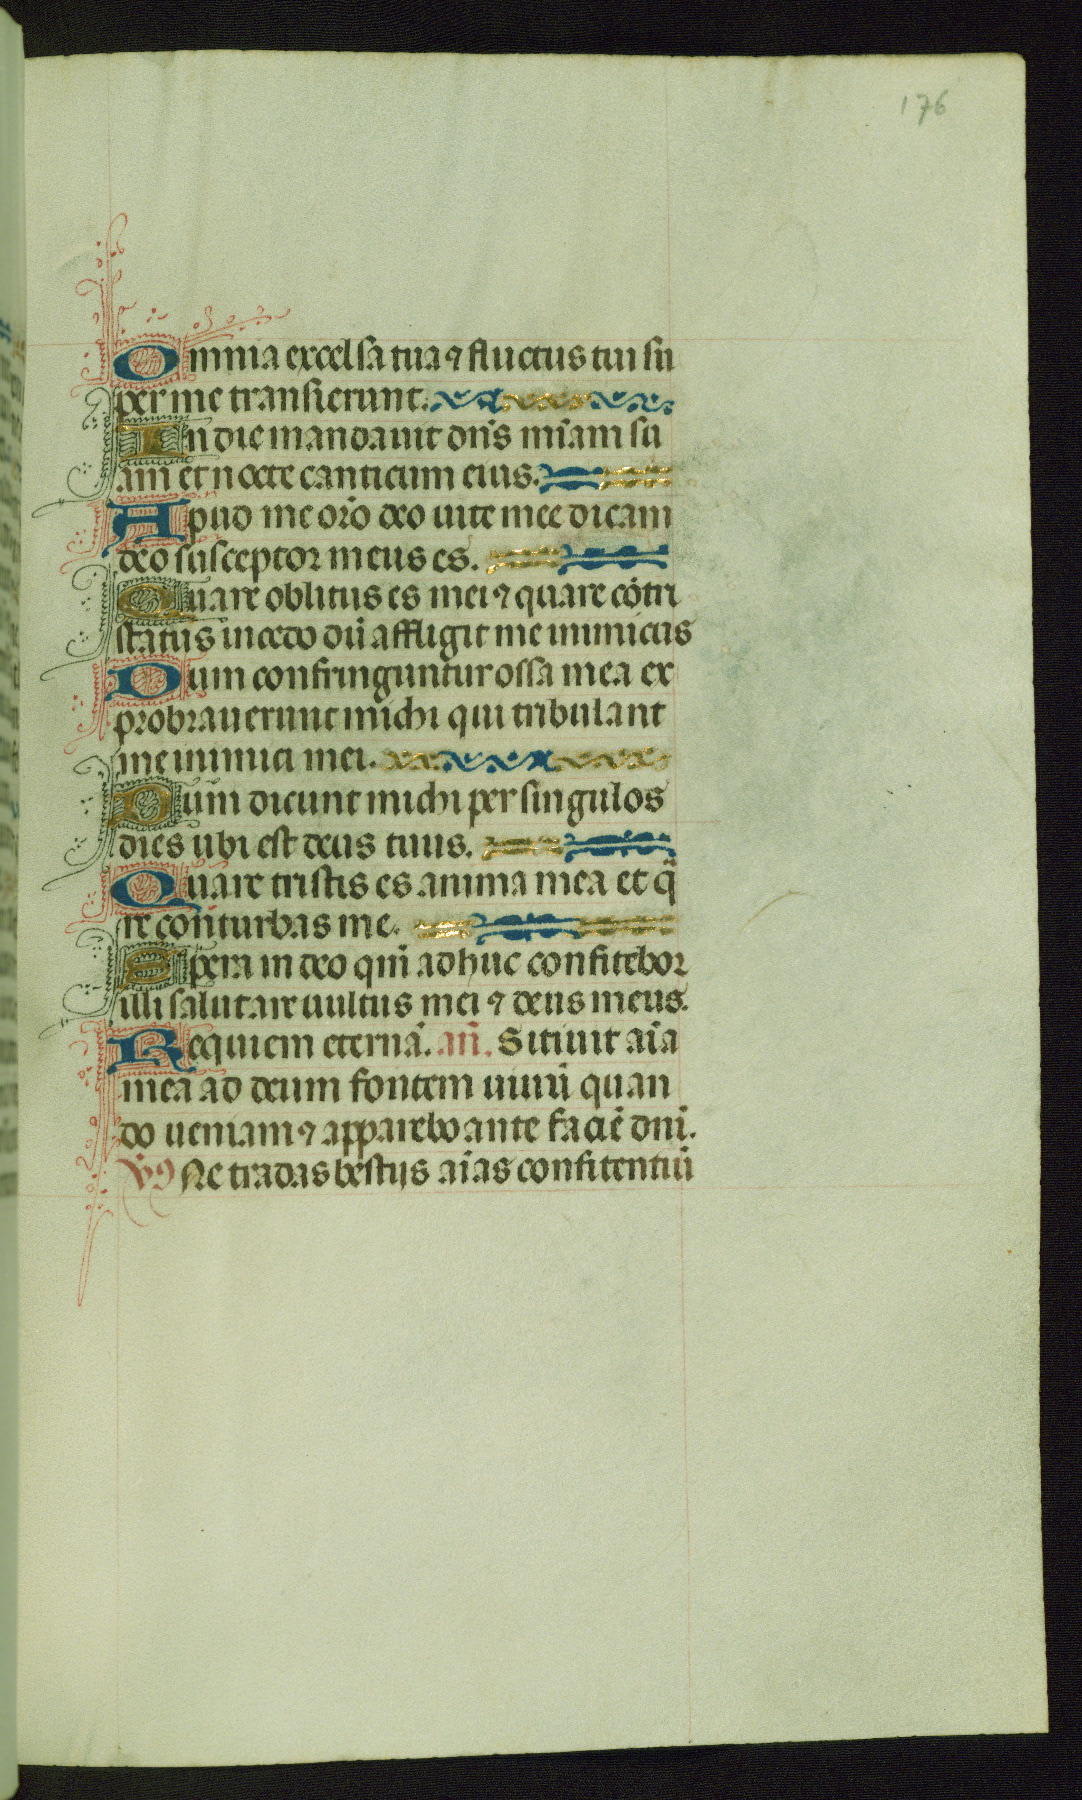 176
Omnia excelsa tua ⁊ fluctus tui sū
per me transierunt.
In die mandauit dn̄s mīam su
am et nocte canticum eius.
Apud me orō deo uite mee dicam
deo susceptor meus es.
Quare oblitus es mei ⁊ quare cōtri
status incedo dū affligit me inimicus
Dum confringuntur ossa mea ex
probrauerunt michi qui tribulant
me inimici mei.
Dum dicunt michi per singulos
dies ubi est deus tuus.
Quare tristis es anima mea et q̄
re conturbas me.
Spera in deo qm̄ adhuc confitebor
illi salutare uultus mei ⁊ deus meus.
Requiem eternā. an̄. Sitiuit aīa
mea ad deum fontem uiuū quan
do ueniam ⁊ apparebo ante faciē dn̄i.
V9 Ne tradas bestijs aīas confitentiū